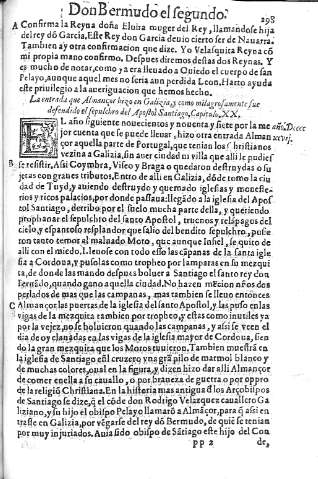 Don Bermudo el segundo.
298
A Confirma la Reyna doña Eluira muger del Rey, llamandose hija
del rey dō Garcia. Este Rey don Garcia deuio cierto ser de Nauarra.
Tambien ay otra confirmacion que dize. Yo Velasquita Reyna cō
mi propia mano confirmo. Despues diremos destas dos Reynas. Y
es mucho de notar, como ya era lleuado a Ouiedo el cuerpo de san
Pelayo, aunque aquel mes no seria aun perdida Leon. Harto ayuda
este priuilegio a la aueriguacion que hemos hecho.
La entrada que Almançor hizo en Galizia, y como milagrosamente fue
defendido el sepulchro del Apostol Santiago. Capitulo. XX.
EL año siguiente nouecientos y nouenta y siete por la me
jor cuenta que se puede lleuar, hizo otra entrada Almançor
por aquella parte de Portugal, que tenian los christianos
vezina a Galizia, sin auer ciudad ni villa que alli le pudies
B se resistir. Assi Coymbra, Viseo y Braga o quedaron destruydas o su
jetas con graues tributos. Entro de alli en Galizia, dōde tomo la ciu
dad de Tuyd, y auiendo destruydo y quemado iglesias y moneste-
rios y ricos palacios, por donde passaua: llegādo a la iglesia del Apostol
Santiago, derribo por el suelo mucha parte della, y queriendo
prophanar el sepulchro del santo Apostol, truenos y relāpagos del
cielo, y espantoso resplandor que salio del bendito sepulchro, pusie
ron tanto temor al maluado Moro, que aunque Infiel, se quito de
alli con el miedo. Lleuose con todo esso las cāpanas de la santa igle
sia a Cordoua, y pusolas como tropheo por lamparas en su mezqui
ta, de donde las mando despues boluer a Santiago el santo rey don
Fernādo, quando gano aquella ciudad. No hazen mēcion nřos dos
perlados de mas que las campanas, mas tambien se lleuo entonces
C Almançor las puertas de la iglesia del santo Apostol, y las puso en las
vigas de la mezquita tambien por tropheo, y estas como inutiles ya
por la vejez, no se boluieron quando las campanas, y assi se veen el
dia de oy clauadas en las vigas de la iglesia mayor de Cordoua, sien
do la gran mezquita que los Moros tuuieron. Tambien muestrā en
la iglesia de Santiago en el cruzero vna grā pilo de marmol blanco y
de muchas colores, oual en la figura, y dizen hizo dar alli Almançor
de comer en ella a su cauallo, o por braueza de guerra o por oppro
de la religiō Christiana. En la historia mas antigua de los Arçobispos
de Santiago se dize, q̄ el cōde don Rodrigo Velazquez cauallero Ga
liziano, y su hijo el obispo Pelayo llamarō a Almāçor, para q̄ assi en
trasse en Galizia, por vēgarse del rey dō Bermudo, de quiē se tenian
por muy injuriados. Auia sido obispo de Sātiago este hijo del Con
pp 2 de,